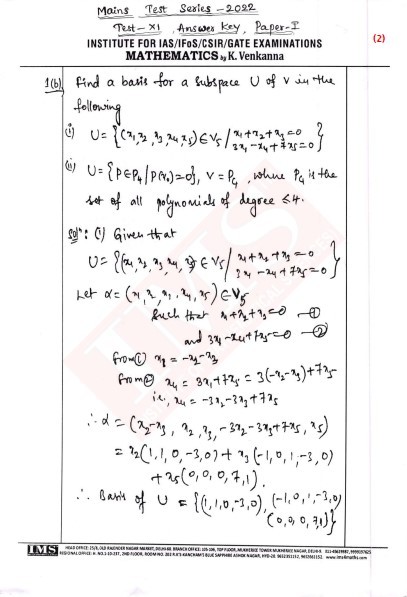 Mains Test Series - 2022
Test - XI, Answer Key, Paper-I
INSTITUTE FOR IAS/IFoS/CSIR/GATE EXAMINATIONS
MATHEMATICS by K. Venkanna
(2)
1(b) Find a basis for a subspace U of V in the
following
(i) U = {(x₁, x₂, x₃, x₄, x₅) ∈ V₅ / x₁+x₂+x₃=0
3x₁-x₄+7x₅=0}
(ii) U = {P ∈ P₄ / P(x₀)=0}, V = P₄, where P₄ is the
set of all polynomials of degree ≤ 4.
Solⁿ: (i) Given that
U = {(x₁, x₂, x₃, x₄, x₅) ∈ V₅ / x₁+x₂+x₃=0
3x₁-x₄+7x₅=0}
Let α = (x₁, x₂, x₃, x₄, x₅) ∈ V₅
Such that x₁+x₂+x₃=0 —①
and 3x₁-x₄+7x₅=0 —②
from ① x₁ = -x₂-x₃
from ② x₄ = 3x₁+7x₅ = 3(-x₂-x₃)+7x₅
i.e., x₄ = -3x₂-3x₃+7x₅
∴ α = (x₂-x₃, x₂, x₃, -3x₂-3x₃+7x₅, x₅)
= x₂(1,1,0,-3,0) + x₃(-1,0,1,-3,0)
+ x₅(0,0,0,7,1).
∴ Basis of U = {(1,1,0,-3,0), (-1,0,1,-3,0)
(0,0,0,7,1)}
IMS